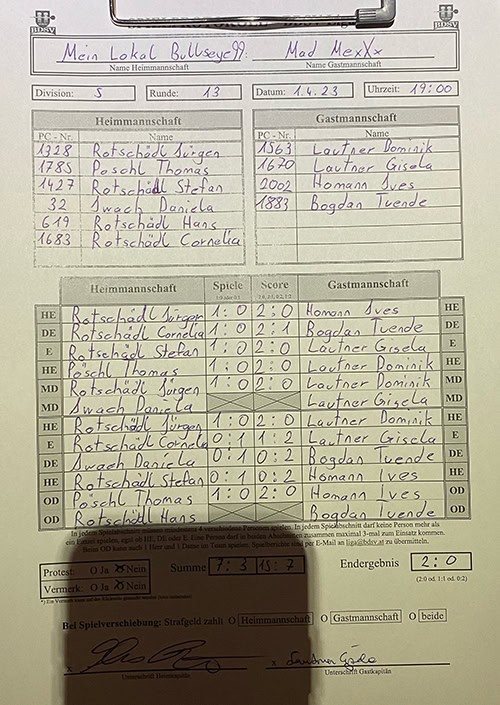 BDSV BDSV
Mein Lokal Bullseye99 : Mad MexXx
Name Heimmannschaft Name Gastmannschaft
Division: 5 Runde: 13 Datum: 1.4.23 Uhrzeit: 19:00
Heimmannschaft Gastmannschaft
PC - Nr. Name PC - Nr. Name
1328 Rotschädl Jürgen 1563 Lautner Dominik
1785 Pöschl Thomas 1670 Lautner Gisela
1427 Rotschädl Stefan 2002 Homann Ives
32 Swach Daniela 1883 Bogdan Tuende
619 Rotschädl Hans
1683 Rotschädl Cornelia
Heimmannschaft Spiele Score Gastmannschaft
HE Rotschädl Jürgen 1:0 2:0 Homann Ives HE
DE Rotschädl Cornelia 1:0 2:1 Bogdan Tuende DE
E Rotschädl Stefan 1:0 2:0 Lautner Gisela E
HE Pöschl Thomas 1:0 2:0 Lautner Dominik HE
MD Rotschädl Jürgen 1:0 2:0 Lautner Dominik MD
MD Swach Daniela Lautner Gisela MD
HE Rotschädl Jürgen 1:0 2:0 Lautner Dominik HE
E Rotschädl Cornelia 0:1 1:2 Lautner Gisela E
DE Swach Daniela 0:1 0:2 Bogdan Tuende DE
HE Rotschädl Stefan 0:1 0:2 Homann Ives HE
OD Pöschl Thomas 1:0 2:0 Homann Ives OD
OD Rotschädl Hans Bogdan Tuende OD
In jedem Spielabschnitt müssen mindestens 4 verschiedene Personen spielen. In jedem Spielabschnitt darf keine Person mehr als
ein Einzel spielen, egal ob HE, DE oder E. Eine Person darf in beiden Abschnitten zusammen maximal 3-mal zum Einsatz kommen.
Beim OD kann auch 1 Herr und 1 Dame im Team spielen. Spielberichte sind per E-Mail an liga@bdsv.at zu übermitteln.
Protest: O Ja O Nein Summe 7:3 15:7 Endergebnis 2:0
Vermerk: O Ja O Nein (2:0 od. 1:1 od. 0:2)
Bei Spielverschiebung: Strafgeld zahlt O Heimmannschaft O Gastmannschaft O beide
x x Lautner Gisela
Unterschrift Heimkapitän Unterschrift Gastkapitän